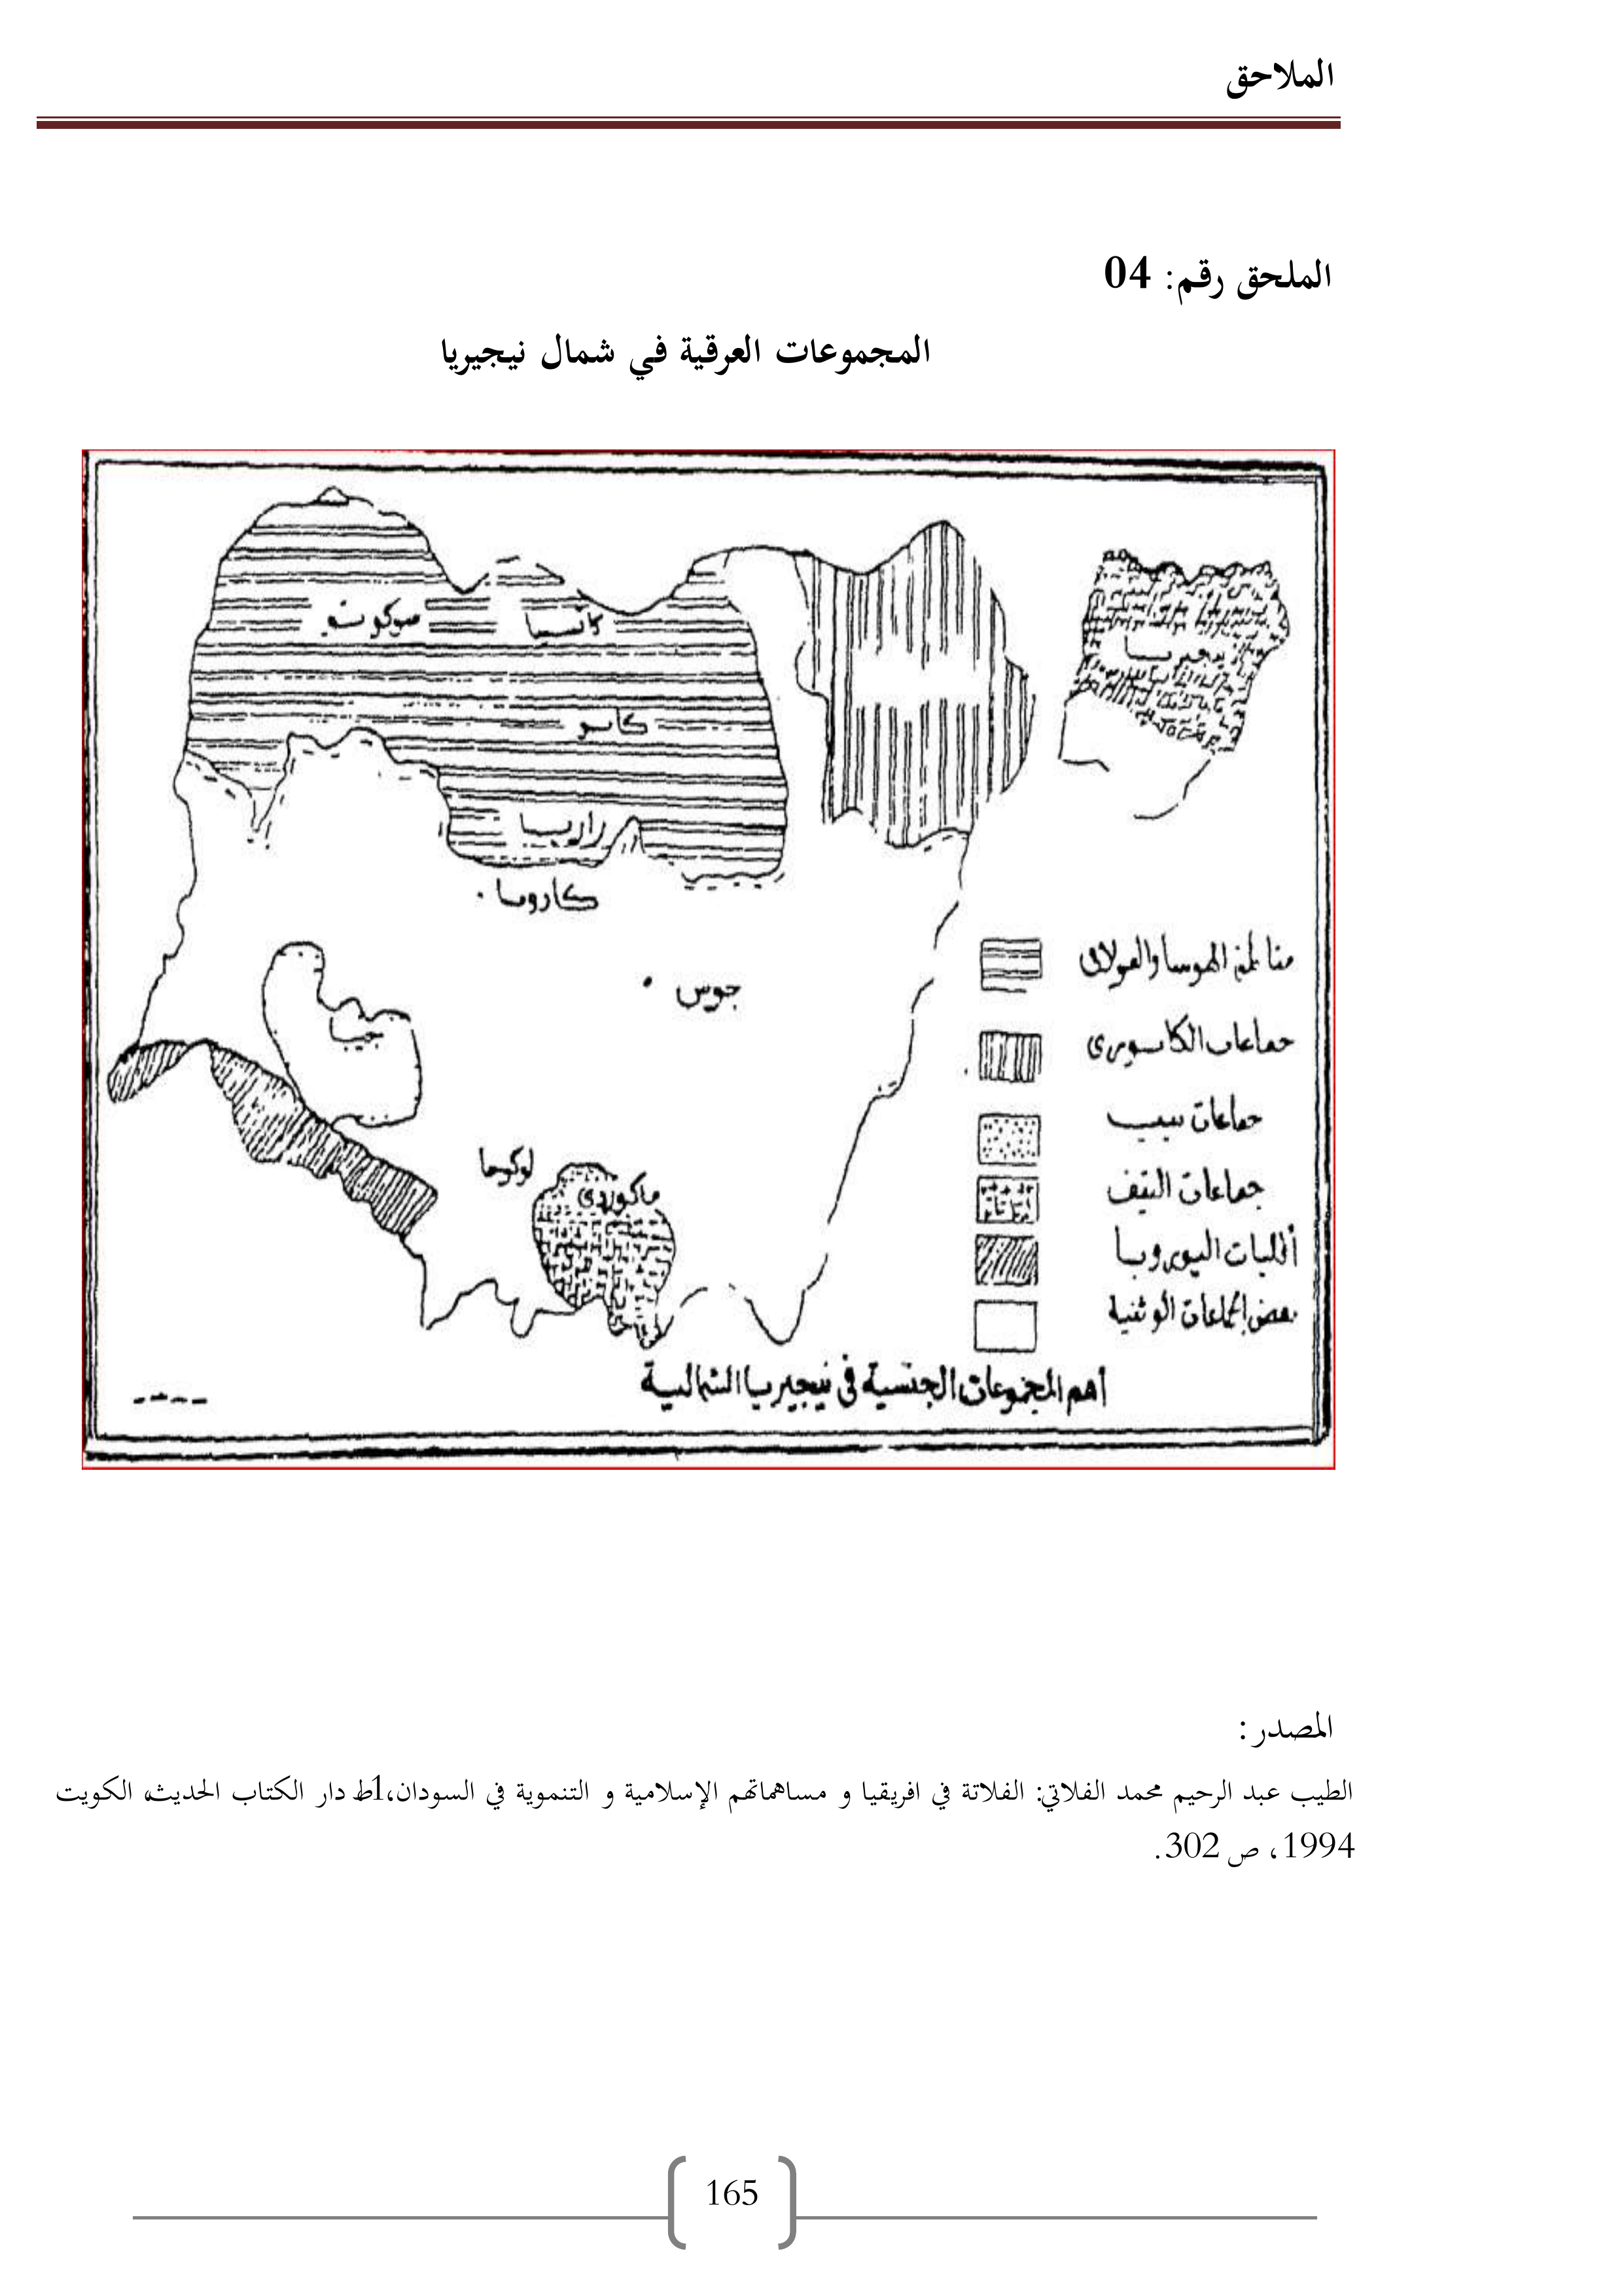 الملاحق
الملحق رقم: 04
المجموعات العرقية في شمال نيجيريا
صوكوتو
كاتسينا
نيجيريا
كانو
زاريا
كادونا
جوس
لوكوجا
ماكوردي
مناطق الهوسا والفولاني
جماعات الكانوري
جماعات
جماعات التيف
أقليات اليوروبا
بعض الجماعات الوثنية
أهم المجموعات الجنسية في نيجيريا الشمالية
المصدر:
الطيب عبد الرحيم محمد الفلاتي: الفلاتة في افريقيا و مساهماتهم الإسلامية و التنموية في السودان،ط1 دار الكتاب الحديث، الكويت
1994، ص 302.
165